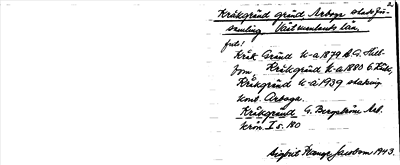 Kråkgränd gränd Arboga stadsför-
samling Västmanlands län,
Kråk Gränd K-a 1879 A.G. Hell-
bom Kråkgränd K-a 1880
Kråkgränd K-a 1939 stadsing
komt. Arboga.
Kråkgränd G. Bergström Arb.
krön. I s. 180
Sigfrid Kampe Jacobson 1943.